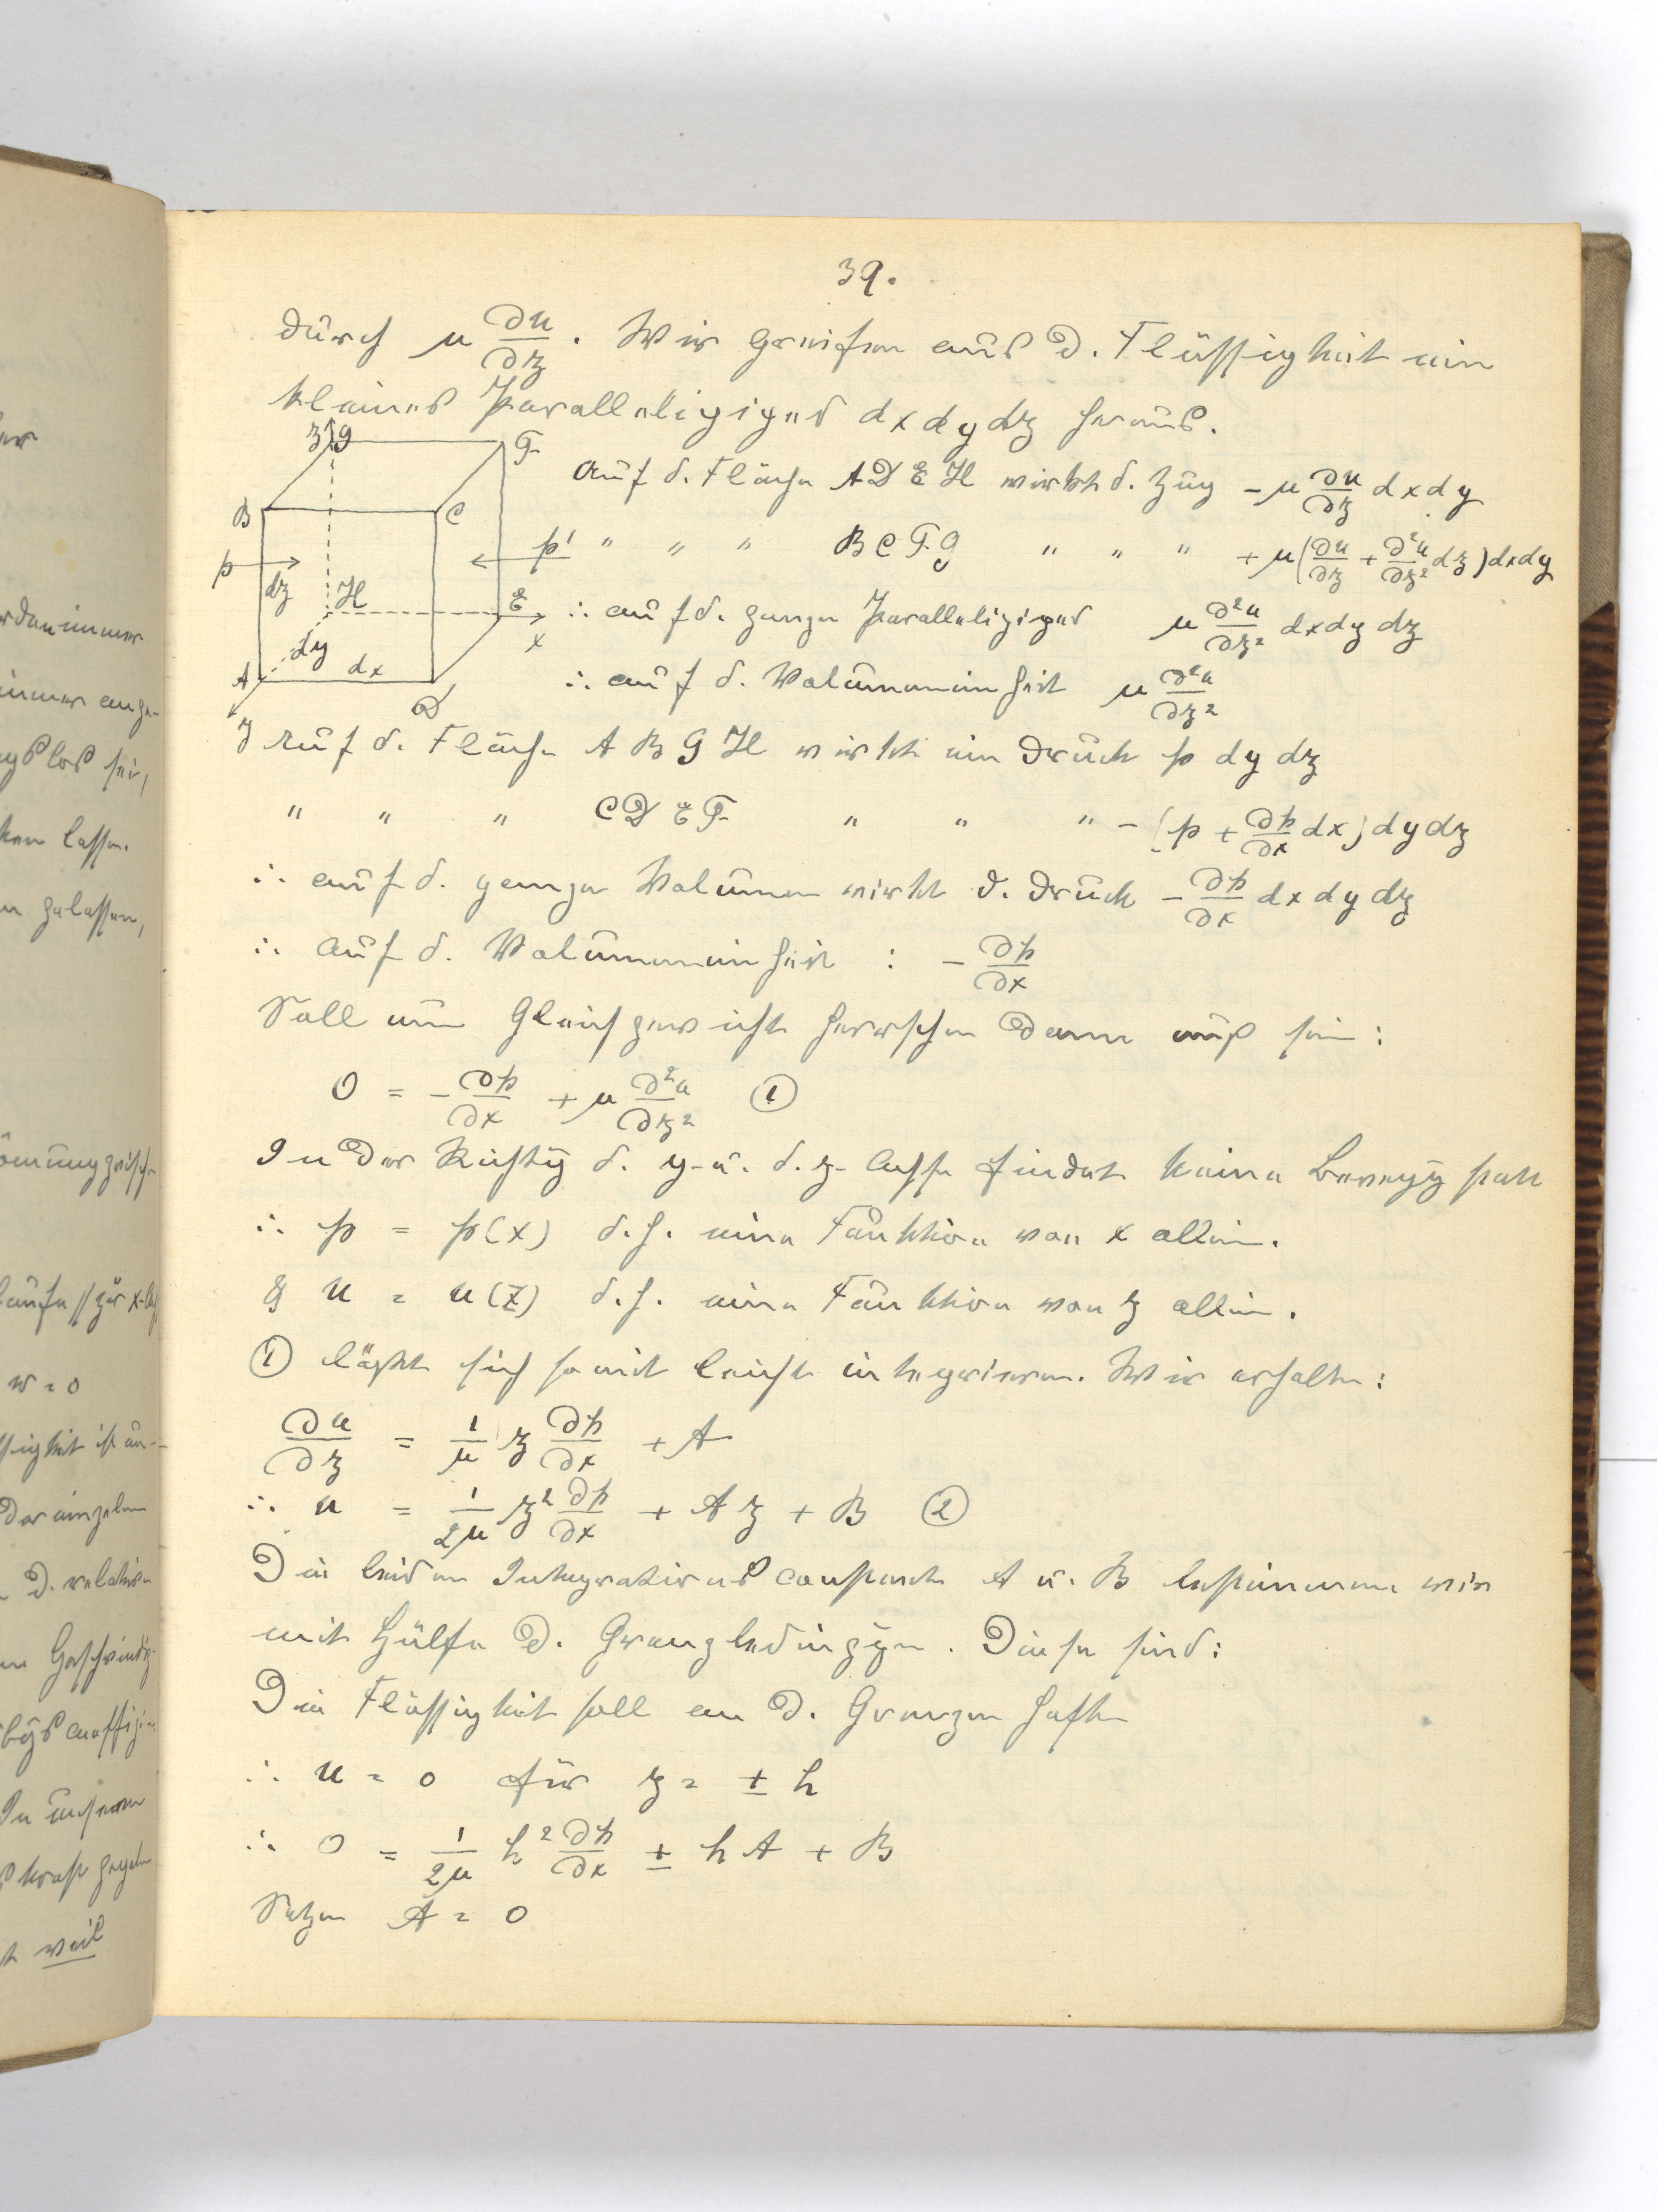 39.
durch μ ∂u/∂z. Wir greifen aus d. Flüssigkeit ein
kleines Parallelipiped dx dy dz heraus.
z G F
Auf d. Fläche ADEH wirkt d. Zug − μ ∂u/∂z dx dy
B C
p p' " " " BCFG " " " + μ(∂u/∂z + ∂²u/∂z² dz) dx dy
dz H E x ∴ auf d. ganze Parallelipiped μ ∂²u/∂z² dx dy dz
dy dx
A D ∴ auf d. Volumeneinheit μ ∂²u/∂z²
y Auf d. Fläche ABGH wirkt ein Druck p dy dz
" " " CDEF " " " − (p + ∂p/∂x dx) dy dz
∴ auf d. ganze Volumen wirkt d. Druck − ∂p/∂x dx dy dz
∴ Auf d. Volumeneinheit : − ∂p/∂x
Soll nun Gleichgewicht herrschen dann muß sein :
0 = − ∂p/∂x + μ ∂²u/∂z² ①
In der Richtg d. y- u. d. z- Achse findet keine Bewegg statt
∴ p = p(x) d.h. eine Funktion von x allein.
& u = u(z) d.h. eine Funktion von z allein.
① läßt sich somit leicht integrieren. Wir erhalten :
∂u/∂z = 1/μ z ∂p/∂x + A
∴ u = 1/2μ z² ∂p/∂x + A z + B ②
Die beiden Integrationsconstante A u. B bestimmen wir
mit Hülfe d. Grenzbedinggen. Diese sind :
Die Flüssigkeit soll an d. Grenzen haften
∴ u = 0 für z = ± h
∴ 0 = 1/2μ h² ∂p/∂x ± h A + B
Setzen A = 0